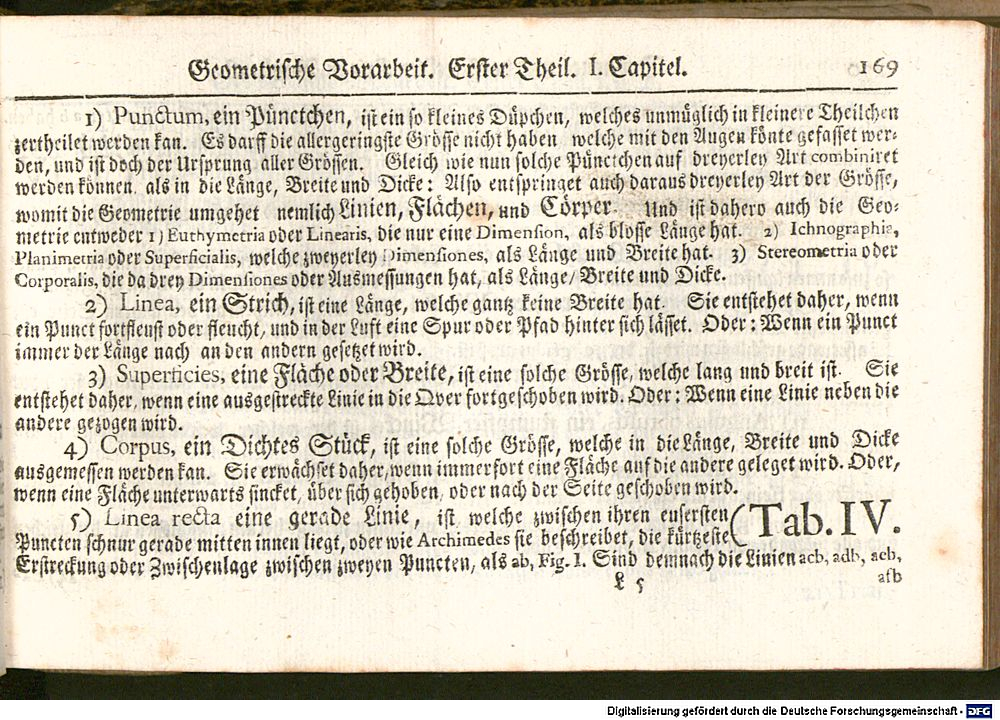 Geometrische Vorarbeit. Erster Theil. I. Capitel. 169
1) Punctum, ein Pünctchen, ist ein so kleines Düpchen, welches unmüglich in kleinere Theilchen
zertheilet werden kan. Es darff die allergeringste Grösse nicht haben welche mit den Augen könte gefasset wer=
den, und ist doch der Ursprung aller Grössen. Gleich wie nun solche Pünctchen auf dreyerley Art combiniret
werden können als in die Länge, Breite und Dicke: Also entspringet auch daraus dreyerley Art der Grösse,
womit die Geometrie umgehet nemlich Linien, Flächen, und Cörper. Und ist dahero auch die Geo=
metrie entweder 1) Euthymetria oder Linearis, die nur eine Dimension, als blosse Länge hat. 2) Ichnographia,
Planimetria oder Superficialis, welche zweyerley Dimensiones, als Länge und Breite hat. 3) Stereometria oder
Corporalis, die da drey Dimensiones oder Ausmessungen hat, als Länge/ Breite und Dicke.
2) Linea, ein Strich, ist eine Länge, welche gantz keine Breite hat. Sie entstehet daher, wenn
ein Punct fortfleust oder fleucht, und in der Luft eine Spur oder Pfad hinter sich lässet. Oder: Wenn ein Punct
immer der Länge nach an den andern gesetzet wird.
3) Superficies, eine Fläche oder Breite, ist eine solche Grösse, welche lang und breit ist. Sie
entstehet daher, wenn eine ausgestreckte Linie in die Qver fortgeschoben wird. Oder: Wenn eine Linie neben die
andere gezogen wird.
4) Corpus, ein Dichtes Stück, ist eine solche Grösse, welche in die Länge, Breite und Dicke
ausgemessen werden kan. Sie erwächset daher, wenn immerfort eine Fläche auf die andere geleget wird. Oder,
wenn eine Fläche unterwarts sincket, über sich gehoben, oder nach der Seite geschoben wird.
5) Linea recta eine gerade Linie, ist welche zwischen ihren eusersten (Tab. IV.
Puncten schnur gerade mitten innen liegt, oder wie Archimedes sie beschreibet, die kürtzeste
Erstreckung oder Zwischenlage zwischen zweyen Puncten, als ab, Fig. I. Sind demnach die Linien acb, adb, aeb,
L 5 afb
Digitalisierung gefördert durch die Deutsche Forschungsgemeinschaft - DFG